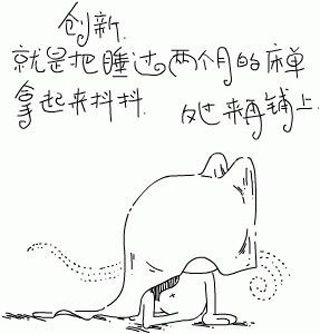 创新.
就是把睡过两个月的床单
拿起来抖抖. 反过来再铺上.